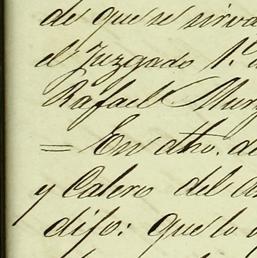 de que se sirva
el Juzgado 1.º
Rafael Mun
= En dho. de
y Calero del
dijo: Que lo